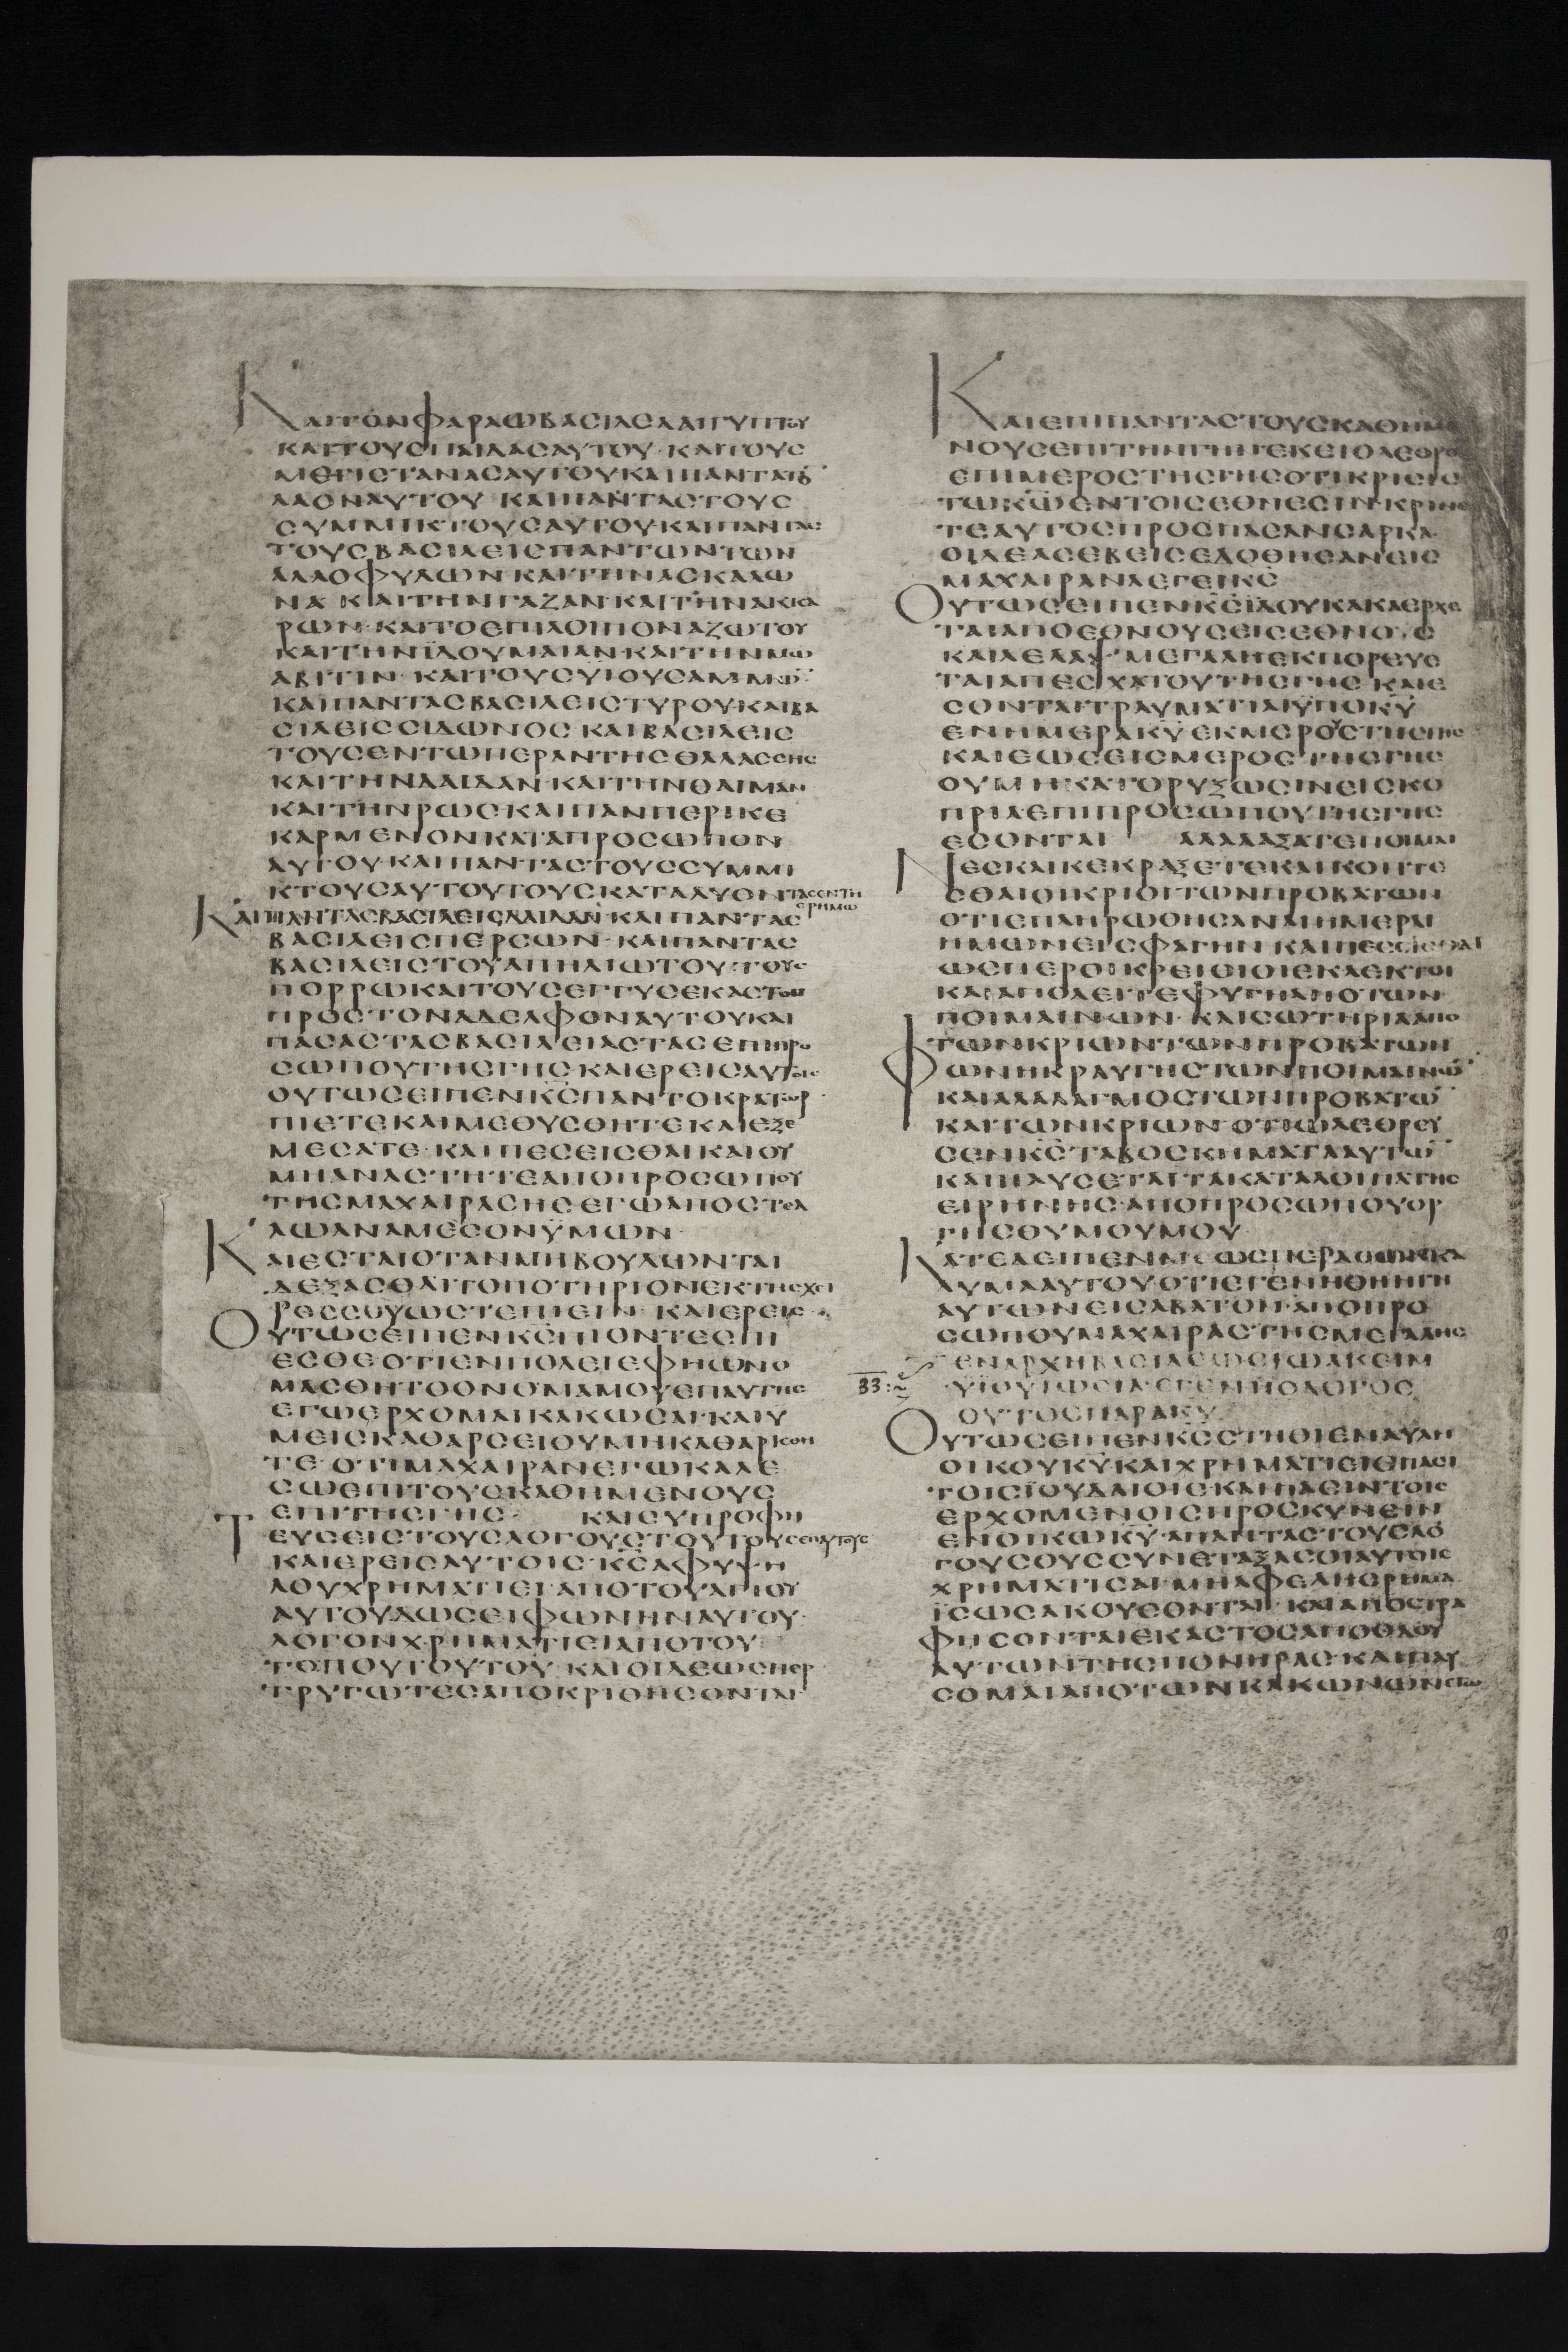 ΚΑΙΤΟΝΦΑΡΑΩΒΑCΙΛΕΑΑΙΓΥΠΤΟΥ
ΚΑΙΤΟΥCΠΑΙΔΑCΑΥΤΟΥ·ΚΑΙΤΟΥC
ΜΕΓΙCΤΑΝΑCΑΥΤΟΥΚΑΙΠΑΝΤΑΤΟ̅
ΛΑΟΝΑΥΤΟΥ ΚΑΙΠΑΝΤΑCΤΟΥC
CΥΜΜΙΚΤΟΥCΑΥΤΟΥ·ΚΑΙΠΑΝΤΑC
ΤΟΥCΒΑCΙΛΕΙCΠΑΝΤΩΝΤΩΝ
ΑΛΛΟΦΥΛΩΝ·ΚΑΙΤΗΝΑCΚΑΛΩ
ΝΑ ΚΑΙΤΗΝΓΑΖΑΝ·ΚΑΙΤΗΝΑΚΚΑ
ΡΩΝ·ΚΑΙΤΟΕΠΙΛΟΙΠΟΝΑΖΩΤΟΥ
ΚΑΙΤΗΝΪΔΟΥΜΑΙΑΝ·ΚΑΙΤΗΝΜΩ
ΑΒΙΤΙΝ·ΚΑΙΤΟΥCΥΪΟΥCΑΜΜΩ̅
ΚΑΙΠΑΝΤΑCΒΑCΙΛΕΙCΤΥΡΟΥ·ΚΑΙΒΑ
CΙΛΕΙCCΙΔΩΝΟC ΚΑΙΒΑCΙΛΕΙC
ΤΟΥCΕΝΤΩΠΕΡΑΝΤΗCΘΑΛΑCCΗC
ΚΑΙΤΗΝΔΑΙΔΑΝ·ΚΑΙΤΗΝΘΑΙΜΑΝ
ΚΑΙΤΗΝΡΩCΚΑΙΠΑΝΠΕΡΙΚΕ
ΚΑΡΜΕΝΟΝΚΑΤΑΠΡΟCΩΠΟΝ
ΑΥΤΟΥ·ΚΑΙΠΑΝΤΑCΤΟΥCCΥΜΜΙ
ΚΤΟΥCΑΥΤΟΥΤΟΥCΚΑΤΑΛΥΟΝΤΑCΕΝΤΗ
ΕΡΗΜΩ
ΚΑΙΠΑΝΤΑCΒΑCΙΛΕΙCΑΙΛΑΜ·ΚΑΙΠΑΝΤΑC
ΒΑCΙΛΕΙCΠΕΡCΩΝ·ΚΑΙΠΑΝΤΑC
ΒΑCΙΛΕΙCΤΟΥΑΠΗΛΙΩΤΟΥ·ΤΟΥC
ΠΟΡΡΩΚΑΙΤΟΥCΕΓΓΥCΕΚΑCΤΟΝ
ΠΡΟCΤΟΝΑΔΕΛΦΟΝΑΥΤΟΥΚΑΙ
ΠΑCΑCΤΑCΒΑCΙΛΕΙΑCΤΑCΕΠΙΠΡΟ
CΩΠΟΥΤΗCΓΗC·ΚΑΙΕΡΕΙCΑΥΤΟΙC
ΟΥΤΩCΕΙΠΕΝΚ̅C̅ΠΑΝΤΟΚΡΑΤΩΡ
ΠΙΕΤΕΚΑΙΜΕΘΥCΘΗΤΕΚΑΙΕΞΕ
ΜΕCΑΤΕ·ΚΑΙΠΕCΕΙCΘΑΙΚΑΙΟΥ
ΜΗΑΝΑCΤΗΤΕΑΠΟΠΡΟCΩΠΟΥ
ΤΗCΜΑΧΑΙΡΑCΗCΕΓΩΑΠΟCΤΕΛ
ΛΩΑΝΑΜΕCΟΝΫΜΩΝ
ΚΑΙΕCΤΑΙΟΤΑΝΜΗΒΟΥΛΩΝΤΑΙ
ΔΕΞΑCΘΑΙΤΟΠΟΤΗΡΙΟΝΕΚΤΗCΧΕΙ
ΡΟCCΟΥΩCΤΕΠΙΕΙΝ·ΚΑΙΕΡΕΙC
ΟΥΤΩCΕΙΠΕΝΚ̅C̅ΠΙΟΝΤΕCΠΙ
ΕCΘΕΟΤΙΕΝΠΟΛΕΙΕΦΗΩΝΟ
ΜΑCΘΗΤΟΟΝΟΜΑΜΟΥΕΠΑΥΤΗC
ΕΓΩΕΡΧΟΜΑΙΚΑΚΩCΑΙ·ΚΑΙΥ
ΜΕΙCΚΑΘΑΡCΕΙΟΥΜΗΚΑΘΑΡΙCΘΗ
ΤΕ·ΟΤΙΜΑΧΑΙΡΑΝΕΓΩΚΑΛΕ
CΩΕΠΙΤΟΥCΚΑΘΗΜΕΝΟΥC
ΕΠΙΤΗCΓΗC· ΚΑΙCΥΠΡΟΦΗ
ΤΕΥCΕΙCΤΟΥCΛΟΓΟΥCΤΟΥΤΟΥCΕΠΑΥΤΟΥC
ΚΑΙΕΡΕΙCΑΥΤΟΙC·Κ̅C̅ΑΦΥΨΗ
ΛΟΥΧΡΗΜΑΤΙΕΙ·ΑΠΟΤΟΥΑΓΙΟΥ
ΑΥΤΟΥΔΩCΕΙΦΩΝΗΝΑΥΤΟΥ·
ΛΟΓΟΝΧΡΗΜΑΤΙCΙΑΠΟΤΟΥ
ΤΟΠΟΥΤΟΥΤΟΥ·ΚΑΙΟΙΔΕΩCΠΕΡ
ΤΡΥΓΩΤΕCΑΠΟΚΡΙΘΗCΟΝΤΑΙ·
ΚΑΙΕΠΙΠΑΝΤΑCΤΟΥCΚΑΘΗΜΕ
ΝΟΥCΕΠΙΤΗΝΓΗΝΗΚΕΙΟΛΕΘΡΟ
ΕΠΙΜΕΡΟCΤΗCΓΗCΟΤΙΚΡΙCΙC
ΤΩΚ̅Ω̅ΕΝΤΟΙCΕΘΝΕCΙΝ·ΚΡΙΝΕ
ΤΕΑΥΤΟCΠΡΟCΠΑCΑΝCΑΡΚΑ·
ΟΙΔΕΑCΕΒΕΙCΕΔΟΘΗCΑΝΕΙC
ΜΑΧΑΙΡΑΝΛΕΓΕΙΚ̅C̅
ΟΥΤΩCΕΙΠΕΝΚ̅C̅ΪΔΟΥΚΑΚΑΕΡΧΕ
ΤΑΙΑΠΟΕΘΝΟΥCΕΙCΕΘΝΟC
ΚΑΙΛΕΛΑΨΜΕΓΑΛΗΕΚΠΟΡΕΥΕ
ΤΑΙΑΠΕCΧΑΤΟΥΤΗCΓΗC·ΚΑΙΕ
CΟΝΤΑΙΤΡΑΥΜΑΤΙΑΙΫΠΟΚ̅Υ̅
ΕΝΗΜΕΡΑΚ̅Υ̅ΕΚΜΕΡΟΥCΤΗCΓΗC
ΚΑΙΕΩCΕΙCΜΕΡΟCΤΗCΓΗC
ΟΥΜΗΚΑΤΟΡΥΞΩCΙΝΕΙCΚΟ
ΠΡΙΑΕΠΙΠΡΟCΩΠΟΥΤΗCΓΗC
ΕCΟΝΤΑΙ ΑΛΑΛΑΞΑΤΕΠΟΙΜΑΙ
ΝΕCΚΑΙΚΕΚΡΑΞΕΤΕΚΑΙΚΟΠΤΕ
CΘΑΙΟΙΚΡΙΟΙΤΩΝΠΡΟΒΑΤΩΝ
ΟΤΙΕΠΛΗΡΩΘΗCΑΝΑΙΗΜΕΡΑΙ
ΗΜΩΝΕΙCΦΑΓΗΝ·ΚΑΙΠΕCΕΙCΘΑΙ
ΩCΠΕΡΟΙΚΡΕΙΟΙΟΙΕΚΛΕΚΤΟΙ
ΚΑΙΑΠΟΛΕΙΤΕΦΥΓΗΑΠΟΤΩΝ
ΠΟΙΜΑΙΝΩΝ·ΚΑΙCΩΤΗΡΙΑΑΠΟ
ΤΩΝΚΡΙΩΝΤΩΝΠΡΟΒΑΤΩΝ
ΦΩΝΗΚΡΑΥΓΗCΤΩΝΠΟΙΜΑΙΝΩ̅
ΚΑΙΑΛΑΛΑΓΜΟCΤΩΝΠΡΟΒΑΤΩ̅
ΚΑΙΤΩΝΚΡΙΩΝ·ΟΤΙΩΛΕΘΡΕΥ
CΕΝΚ̅C̅ΤΑΒΟCΚΗΜΑΤΑΑΥΤΩ̅
ΚΑΙΠΑΥCΕΤΑΙΤΑΚΑΤΑΛΟΙΠΑΤΗC
ΕΙΡΗΝΗC·ΑΠΟΠΡΟCΩΠΟΥΟΡ
ΓΗCΘΥΜΟΥΜΟΥ
ΚΑΤΕΛΕΙΠΕΝ ΩCΠΕΡΛΕΩΝ
ΛΥΜΑΑΥΤΟΥΟΤΙΕΓΕΝΗΘΗΗΓΗ
ΑΥΤΩΝΕΙCΑΒΑΤΟΝ·ΑΠΟΠΡΟ
CΩΠΟΥΜΑΧΑΙΡΑCΤΗCΜΕΓΑΛΗC
ΕΝΑΡΧΗΒΑCΙΛΕΩCΙΩΑΚΕΙΜ
33: ΥΪΟΥΙΩCΙΑ·ΕΓΕΝΗΘΟΛΟΓΟC
ΟΥΤΟCΠΑΡΑΚ̅Υ̅
ΟΥΤΩCΕΙΠΕΝΚ̅C̅CΤΗΘΙΕΝΑΥΛΗ
ΟΙΚΟΥΚ̅Υ̅ΚΑΙΧΡΗΜΑΤΙΕΙCΠΑCΙ
ΤΟΙCΪΟΥΔΑΙΟΙCΚΑΙΠΑCΙΝΤΟΙC
ΕΡΧΟΜΕΝΟΙCΠΡΟCΚΥΝΕΙΝ
ΕΝΟΙΚΩΚ̅Υ̅·ΑΠΑΝΤΑCΤΟΥCΛΟ
ΓΟΥCΟΥCCΥΝΕΤΑΞΑCΟΙΑΥΤΟΙC
ΧΡΗΜΑΤΙCΑΙ·ΜΗΑΦΕΛΗCΡΗΜΑ
ΪCΩCΑΚΟΥCΟΝΤΑΙ·ΚΑΙΑΠΟCΤΡΑ
ΦΗCΟΝΤΑΙΕΚΑCΤΟCΑΠΟΘΟΔΟΥ
ΑΥΤΩΝΤΗCΠΟΝΗΡΑC·ΚΑΙΠΑΥ
CΟΜΑΙΑΠΟΤΩΝΚΑΚΩΝΩΝΕΓΩ